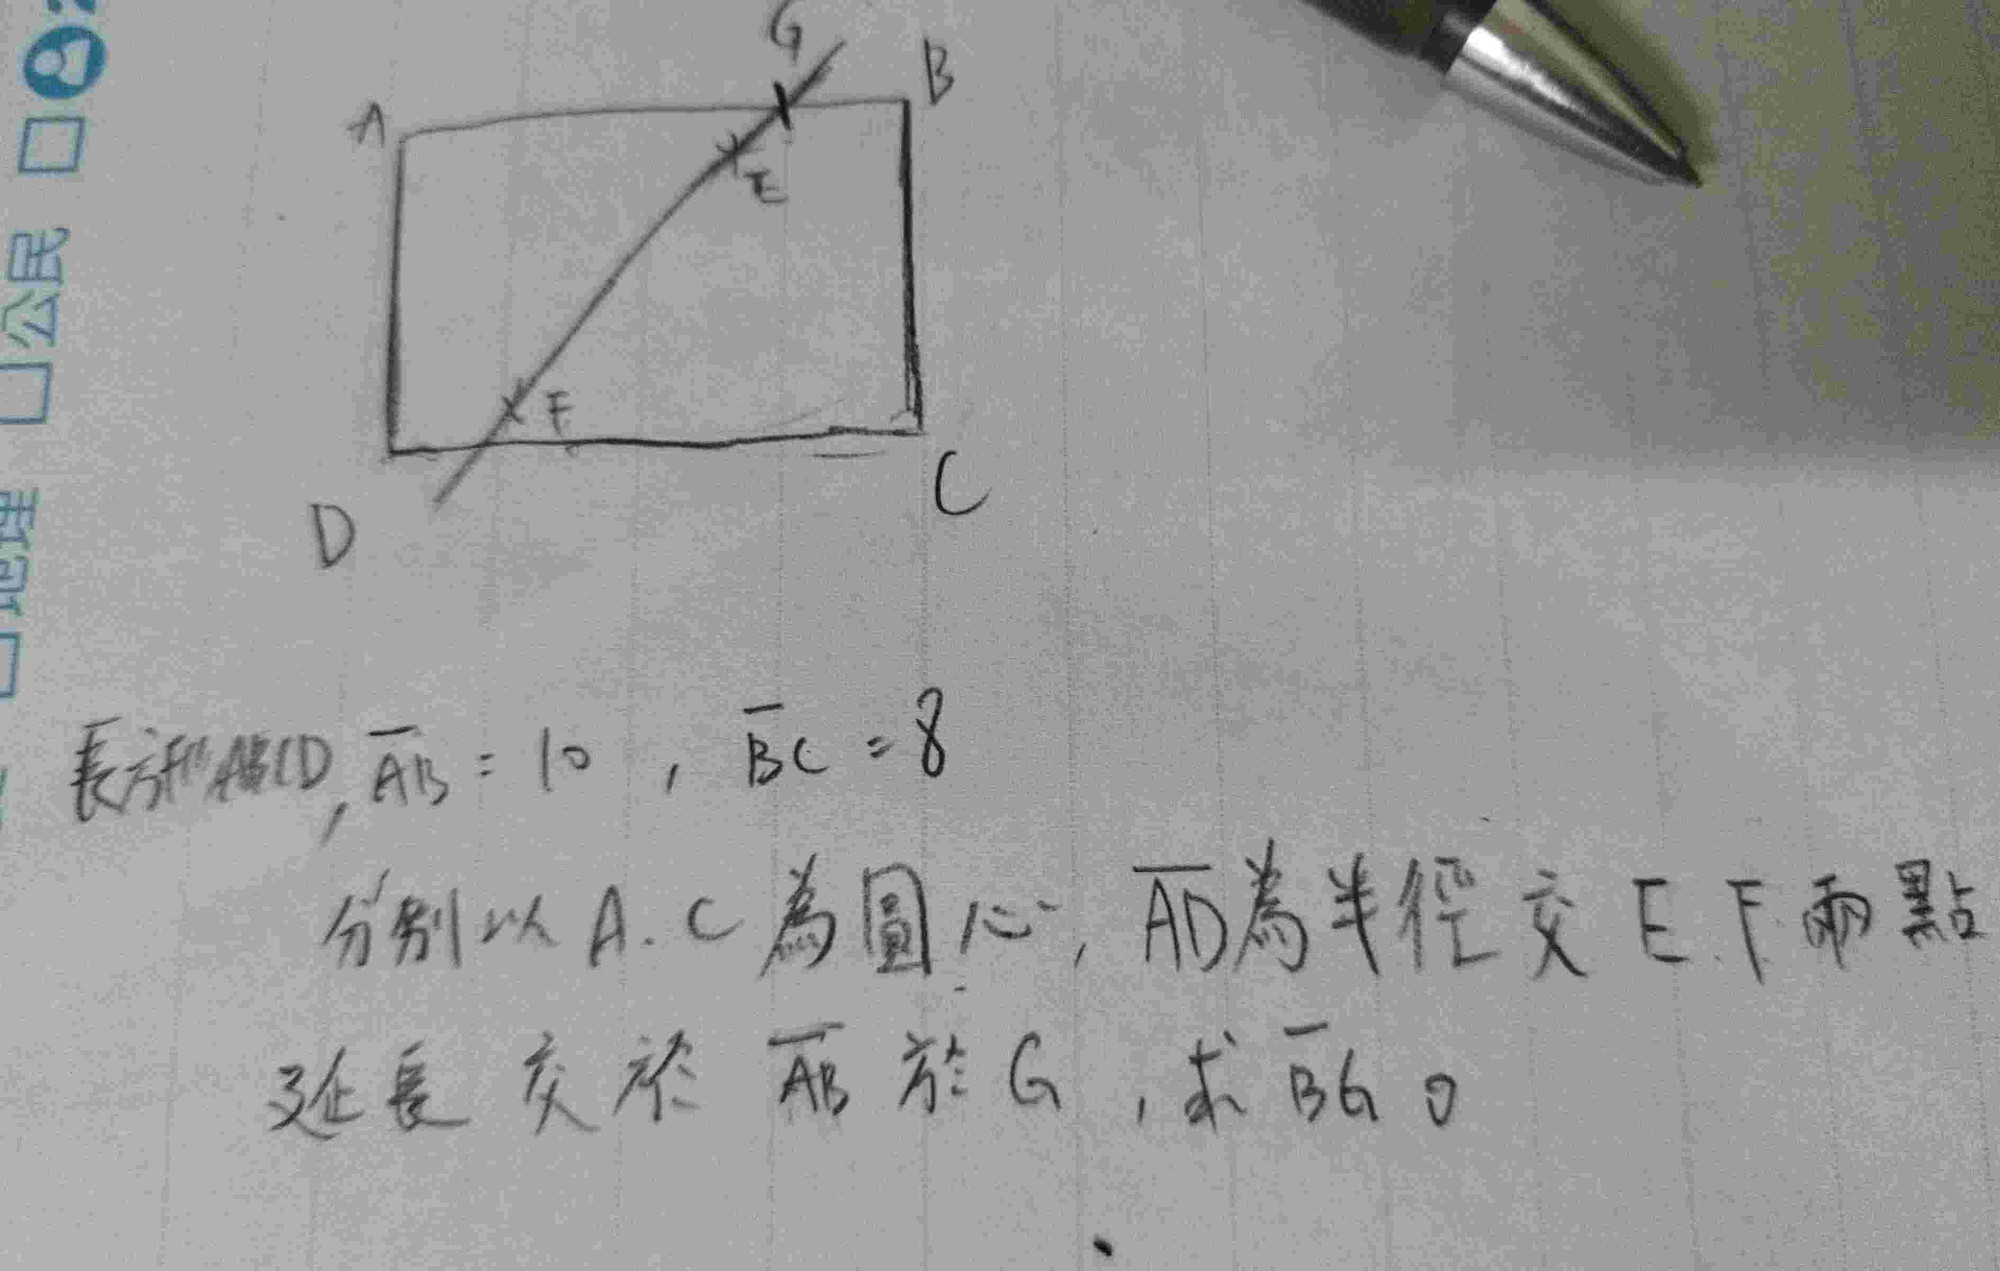 G
A
B
E
F
C
D
公民
地理
長方形ABCD, AB = 10 , BC = 8
分別以 A. C 為圓心, AD為半徑交 E.F 兩點
延長 交於 AB 於 G , 求 BG 。